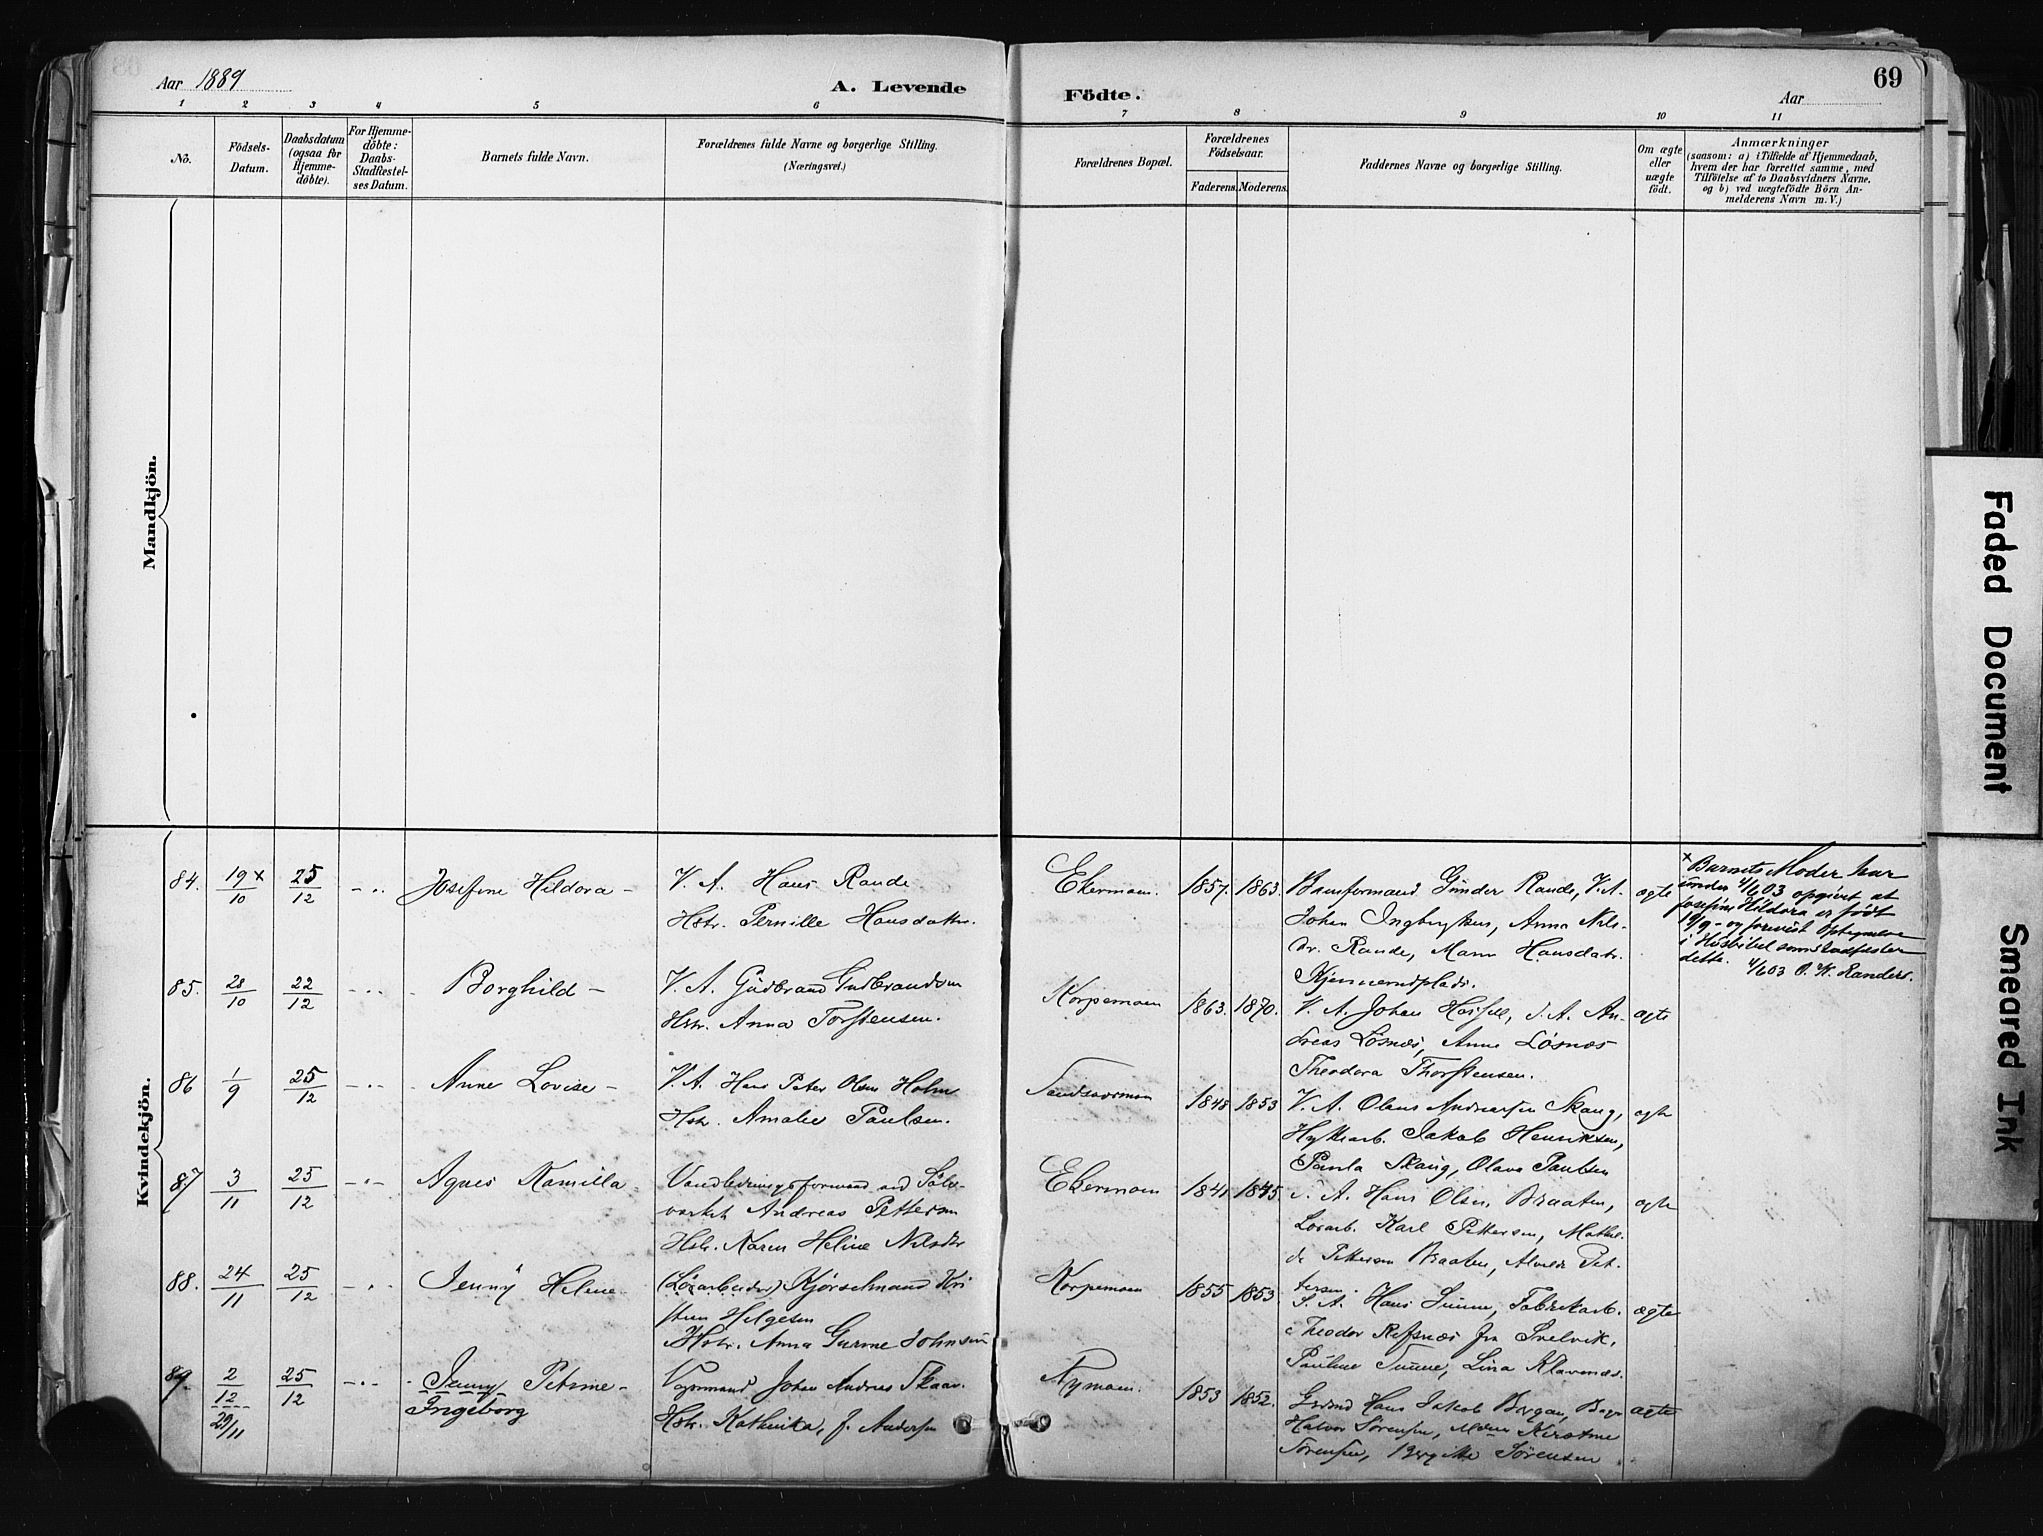 Aar 1889
A. Levende
Födte.
69
Aar
1 2 3 4 5 6 7 8 9 10 11
No.
Födsels-
Datum.
Daabsdatum
(ogsaa for
Hjemme-
döbte).
For Hjemme-
döbte:
Daabs-
Stadfæstel-
ses Datum.
Barnets fulde Navn.
Forældrenes fulde Navne og borgerlige Stilling.
(Næringsvei.)
Forældrenes Bopæl.
Forældrenes
Födselsaar.
Faderens. Moderens.
Faddernes Navne og borgerlige Stilling.
Om ægte
eller
uægte
födt.
Anmærkninger
(saasom: a) i Tilfælde af Hjemmedaab,
hvem der har forrettet samme, med
Tilföielse af to Daabsvidners Navne.
og b) ved uægtefödte Börn An-
melderens Navn m. V.)
Mandkjön.
Kvindekjön.
84. 19x/10 25/12 Josefine Hildora -
V. A. Hans Rande
Hstr. Pernille Hansdatter.
Ekermoen. 1857. 1863.
Gunder Rande, V. A.
Johan Anna Nils-
dr. Rande, Hansdatr.
ægte
x Barnets Moder har
under 4/6 03 opgivet at
Josefine Hildora er født
19/9 - og forevist
i Husbibel som stadfester
dette. 4/6 03 O. K. Randers.
85. 28/10 22/12 Borghild -
V. A. Gudbrand Gudbrandsen
Hstr. Anna Torstensen.
Korpemoen 1863. 1870.
V. A. Johan A. An-
dreas Løsnæs, Anne Løsnæs
Theodora Thorstensen.
ægte
86 1/9 25/12 Anne Lovise -
V. A. Hans Peter Olsen Holm
Hstr. Amalie Paulsen.
1848 1853
V. A. Olaus Andreassen Skaug,
Hytterarb. Jakob Henriksen,
Paula Skaug, Olava Paulsen
ægte
87 3/11 25/12 Agnes Kamilla
Vandledningsformand ved Sølv-
verket Andreas Pettersen
Hstr. Karen Heline Nilsdtr
Ekermoen 1841 1845.
A. Hans Olsen Braaten,
Løsarb. Karl Pettersen, Mathil-
de Pettersen Braaten, Pet-
tersen.
ægte
88. 24/11 25/12 Jenny Helene
(Løsarbeider) Kjørselmand Kri
stian Helgesen
Hstr. Anna Gurine Johnsen
Korpemoen 1855 1853.
S. A. Hans Fabrikarb.
Theodor Refsnæs fra Svelvik,
Pauline Lina Klavenæs.
ægte
89. 2/12 25/12 Jenny Petrine -
29/11 Ingeborg
Vognmand Johan Andreas Skaar.
Hstr. Kathinka, f. Andersen
Nymoen. 1853 1852.
Hans Jakob Bergan,
Halvor Sørensen, Kirstine
Sørensen, Birgitte Sørensen
ægte
Faded Document
Smeared Ink